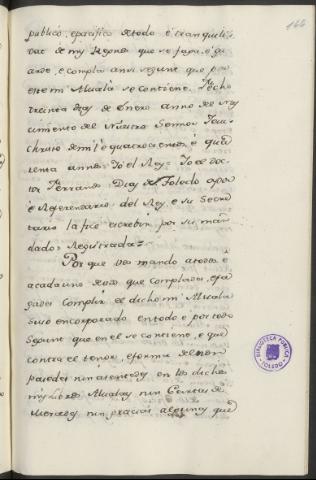 166
publico, e pacifico de todo e tranquili-
dat de my Regnos que se faga, e gu-
arde, e compla ansi segunt que por
este mi Aluala se contiene. Fecho
treinta dias de Enero anno del Na-
cimiento del Nuestro Sennor Jesu
Christo de mil e quatrocientos e qua-
renta annos. Yo el Rey = Yo el Doc-
tor Ferrando Diaz de Toledo oydor
e Referendario del Rey e su Secre-
tario la fice escrebir por su man-
dado = Registrada =
Por que vos mando a todos e
a cada uno de vos que complades, e fa-
gades complir el dicho mi Aluala
suso encorporado en todo e por todo
segunt que en el se contiene, e que
contra el tenor, e forma del non
pasedes nin asentedes en los dichos
mis Libros Alualaes nin Cartas de
Mercedes nin gracias algunas que
BIBLIOTECA PUBLICA
TOLEDO